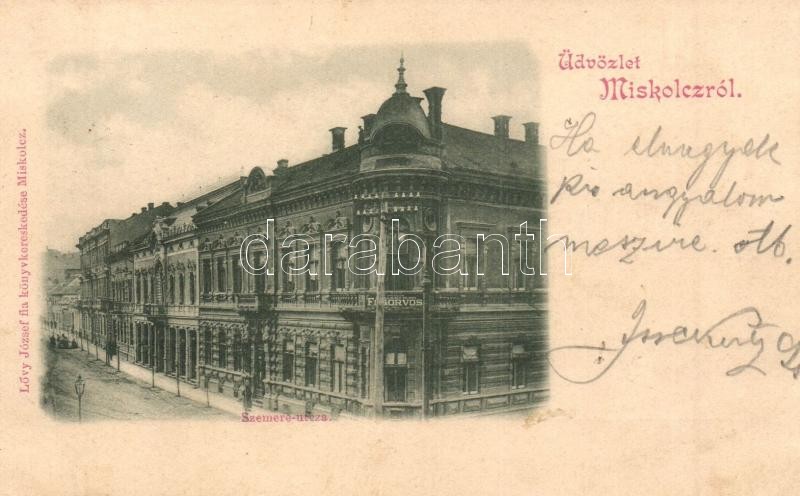 Üdvözlet
Miskolczról.
Ha elmegyek
kis angyalom
messzire. stb.
FOGORVOS
Szemere-utcza.
Lövy József fia könyvkereskedése Miskolcz.
darabanth